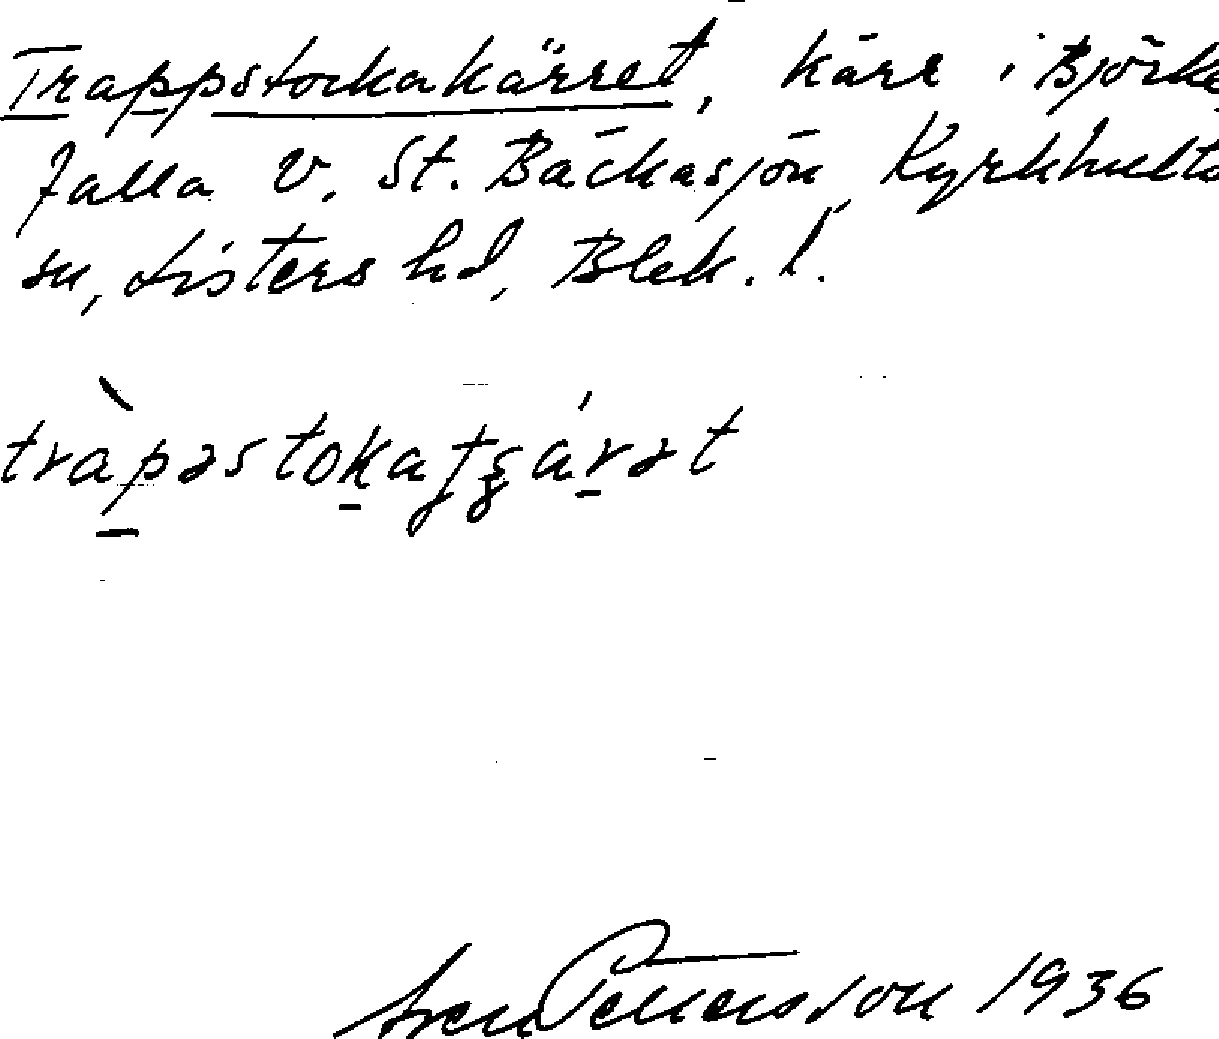 Trappstockakärret, kärr i Björke
falla v. St. Bäckasjön, Kyrkhults
sn, Listers hd, Blek. l.
tràpəstokafʒárət
Sven Pettersson 1936